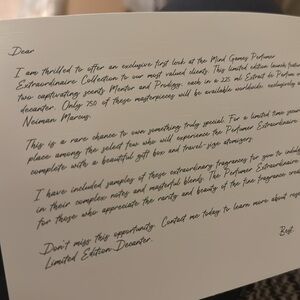 Dear
I am thrilled to offer an exclusive first look at the Mind Games Perfumer
Extraordinaire Collection to our most valued clients. This limited edition launch
two captivating scents Mentor and Prodigy, each in a 225 ml Extrait de Parfum
decanter. Only 750 of these masterpieces will be available worldwide exclusively
Neiman Marcus.
This is a rare chance to own something truly special. For a limited time
place among the select few who will experience the Perfumer Extraordinaire
complete with a beautiful gift box and travel-size atomizers.
I have included samples of these extraordinary fragrances for you to indulge
in their complex notes and masterful blends. The Perfumer Extraordinaire
for those who appreciate the rarity and beauty of the fine fragrance
Don't miss this opportunity. Contact me today to learn more about
Limited Edition Decanter.
Best,